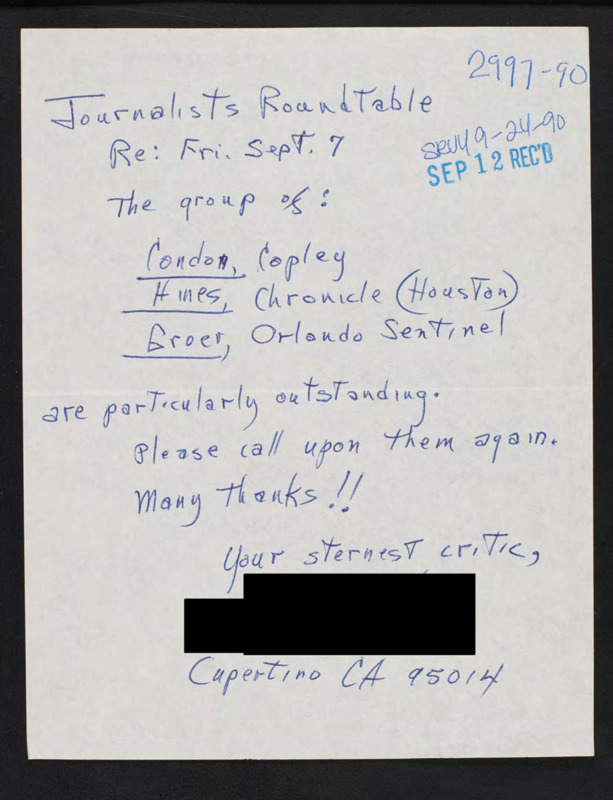 2997-90
Journalists Roundtable
SRW 9-24-90
Re: Fri. Sept. 7
SEP 12 REC'D
The group of:
Condon, Copley
Hines, Chronicle (Houston)
Groer, Orlando Sentinel
are particularly outstanding.
Please call upon them again.
Many thanks!!
Your sternest critic,
Cupertino CA 95014